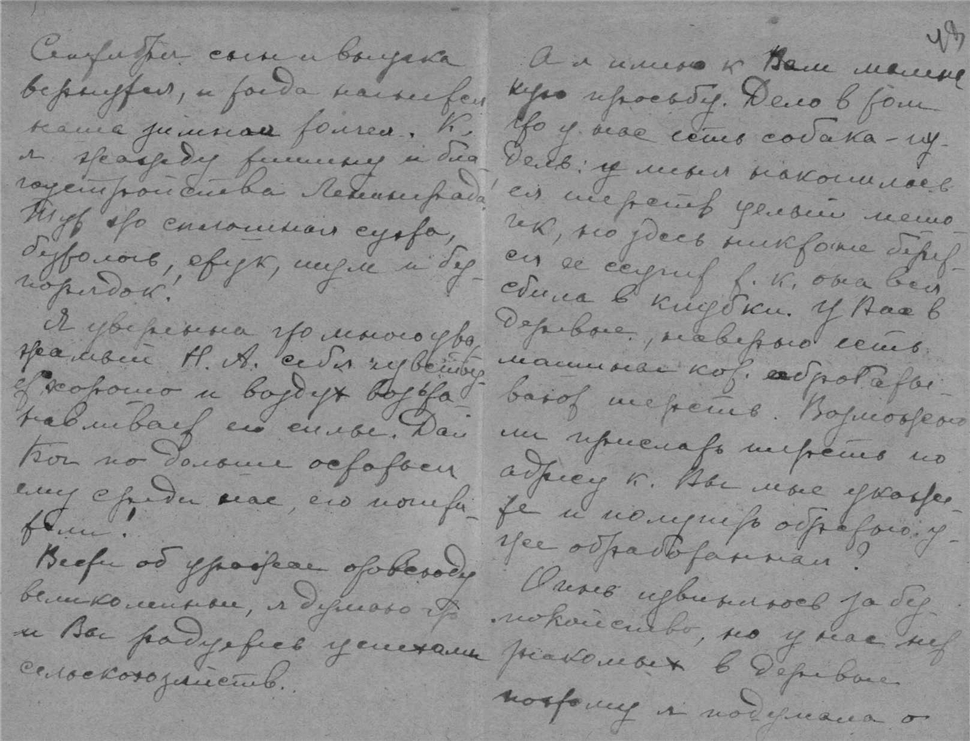 Сентября сын и внучка
вернутся, и тогда начнется
наша зимняя толчея. К.
я жажду тишину и бла
гоустройства Ленинграда!
Тут это сплошная суета,
бестолочь, стук, шум и бес-
порядок!
Я уверенна что многоува
жаемый Н. А. себя чувству-
ет хорошо и воздух восста
навливает его силы. Дай
Бог по дольше остаться
ему среди нас, его почита-
тели!
Вести об урожае отовсюду
великолепные, я думаю что
и Вы радуетесь успехами
сельскохозяйств.
А я имею к Вам малень
кую просьбу. Дело в том
что у нас есть собака-пу-
дель: у меня накопилось
ея шерсть целый мешо-
чек, но здесь никто не берет-
ся ее сучить т. к. она вся
сбила в клубки. У Вас в
деревне, наверно есть
машина кот. обрабаты
вают шерсть. Возможно
ли прислать шерсть по
адресу к. Вы мне укажи-
те и получить обратно у-
же обработанная?
Очень извиняюсь за бес-
покойство, но у нас нет
знакомых в деревне
поэтому я подумала о